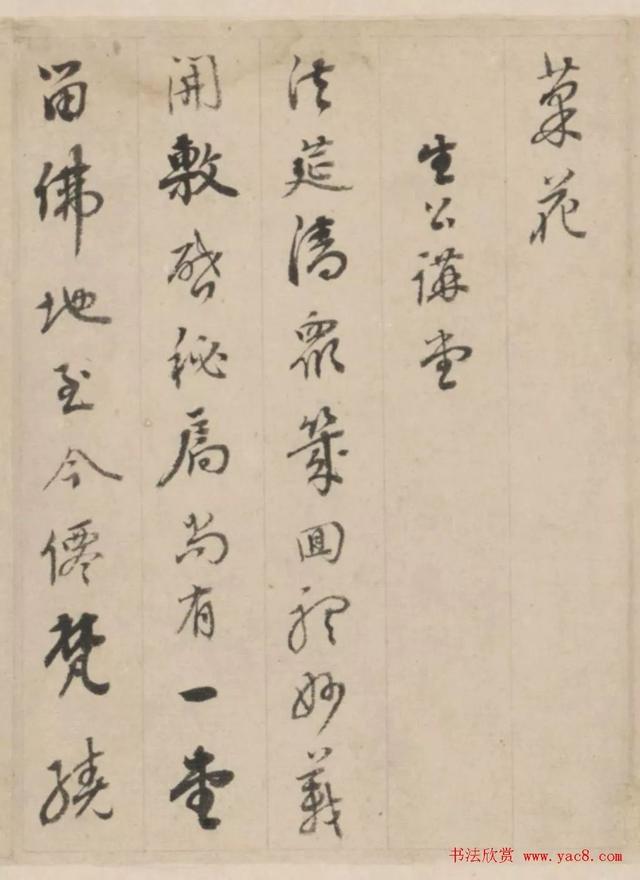 菜花
生公講堂
法筵清衆幾回聽妙義
開敷啓秘扃尚有一堂
留佛地至今僊梵繞
书法欣赏 www.yac8.com